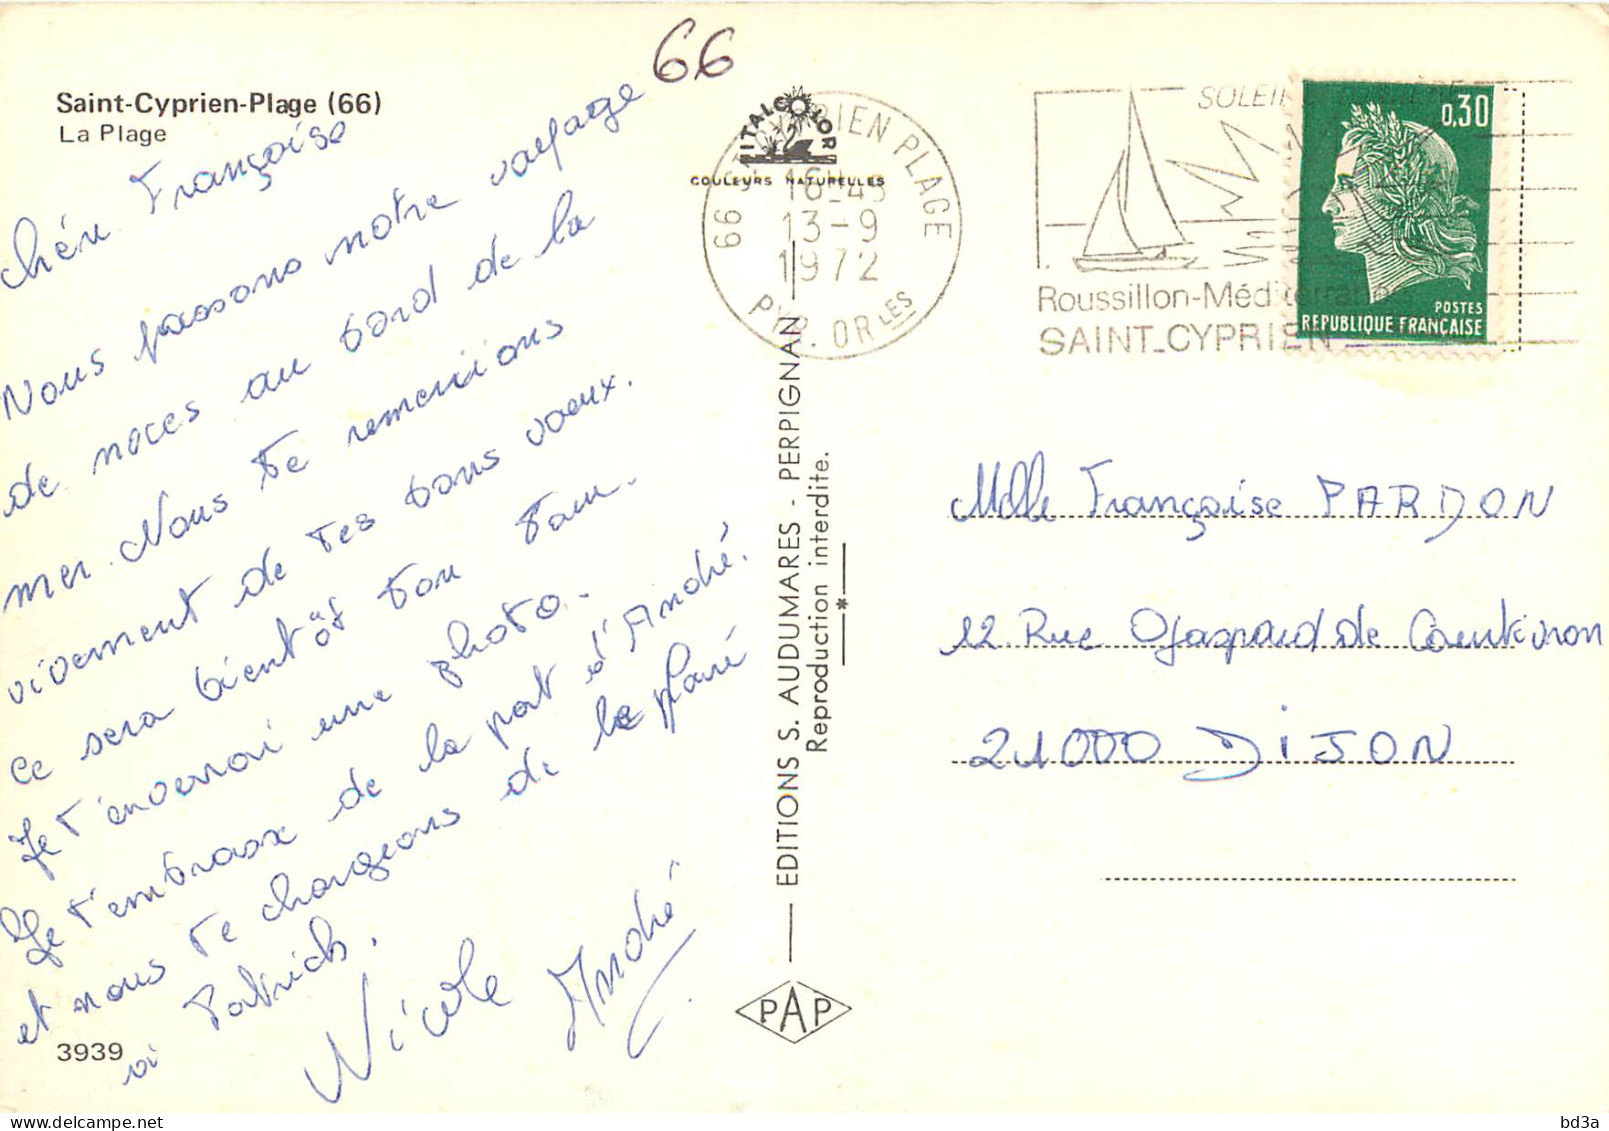 66
Saint-Cyprien-Plage (66)
La Plage
Chère Françoise
Nous passons notre voyage
de noces au bord de la
mer. Nous te remercions
vivement de tes bons vœux.
Ce sera bientôt ton tour.
Je t'enverrai une photo.
Je t'embrasse de la part d'André.
et nous te chargeons de le faire
à Patrick.
Nicole André
3939
VITALCOLOR
COULEURS NATURELLES
66 CYPRIEN PLAGE
16-45
13-9
1972
PYR. ORLES
EDITIONS S. AUDUMARES - PERPIGNAN
Reproduction interdite.
*
PAP
SOLEIL
Roussillon-Méditerranée
SAINT_CYPRIEN
0,30
POSTES
REPUBLIQUE FRANÇAISE
Melle Françoise PARDON
12 Rue Gaspard de
21000 DIJON
bd3a